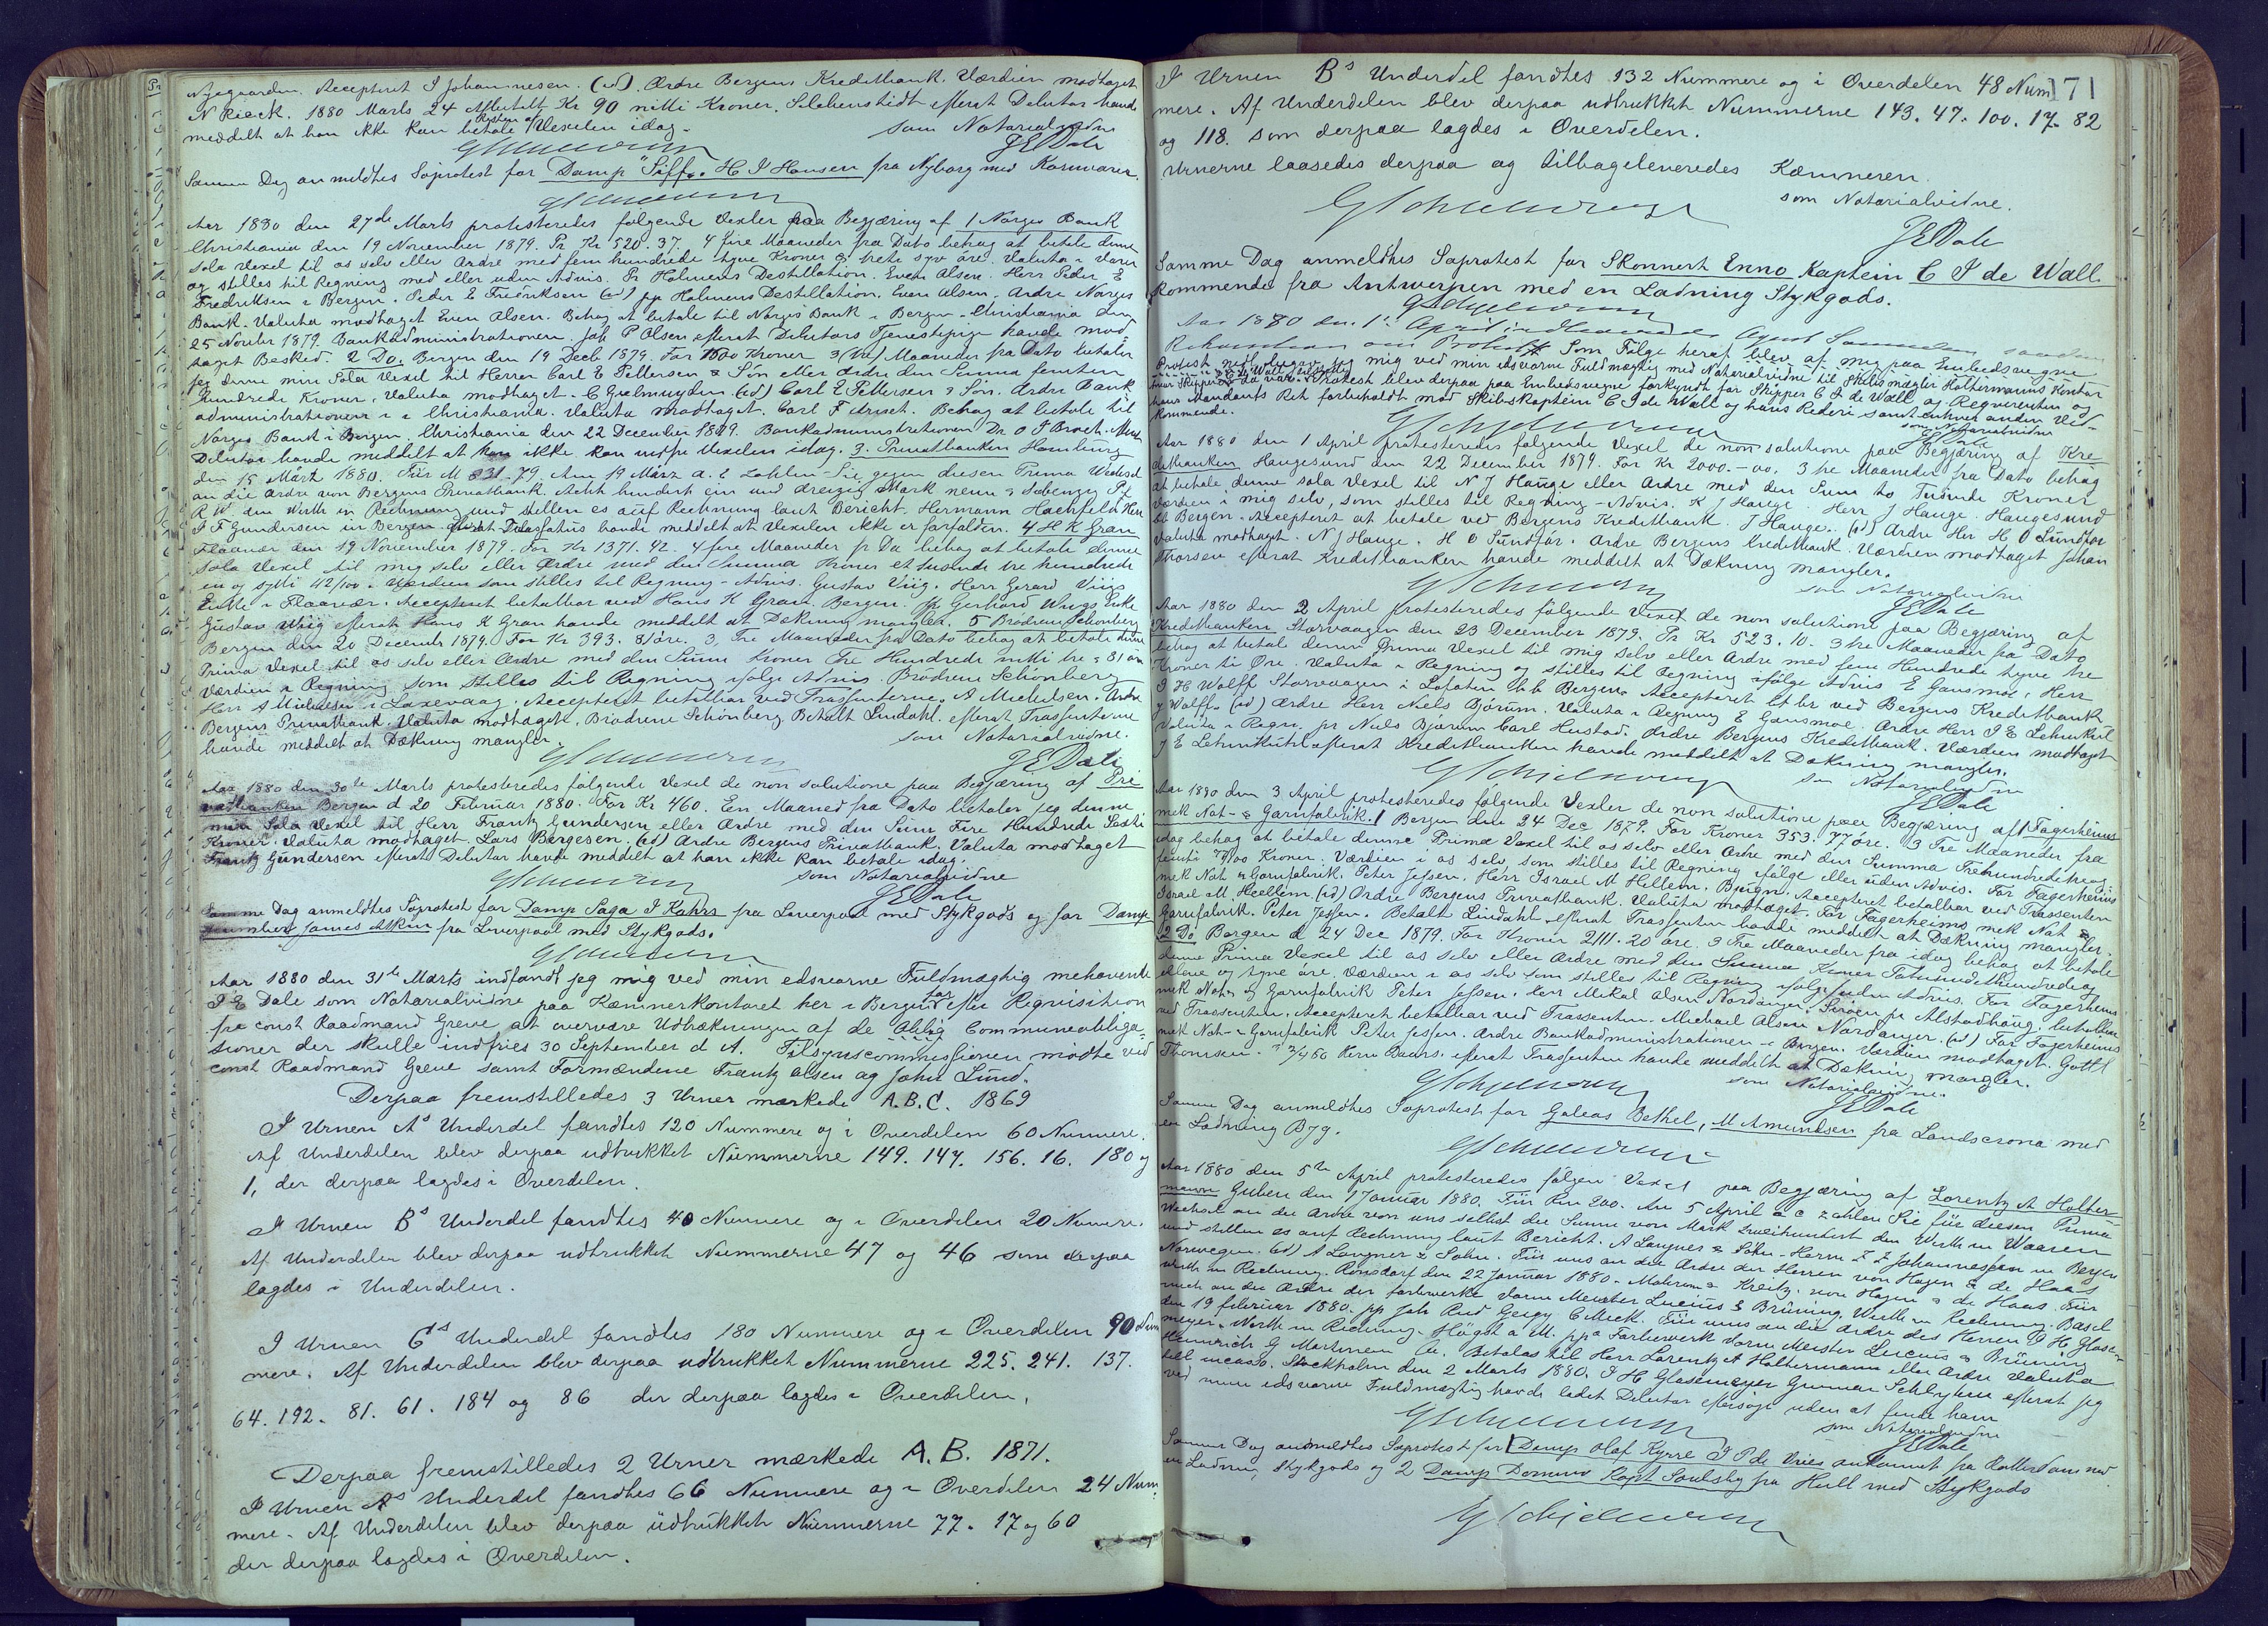 Nygaarden. Accepteret I Johannesen. (ad). Ordre Bergens Kreditbank. Værdien modtaget
N Rieck. 1880 Marts 24 Afbetalt Kr 90 nitti Kroner. efterat Debitor havde
meddelt at han ikke kan betale Resten af Vexelen idag.
som Notarialvidne
JEDale
Samme Dag anmeldtes Søprotest for Damp "Siff". H I Hansen fra Nyborg med Kornvarer.
Aar 1880 den 27de Marts protesteredes følgende Vexler paa Begjæring af 1 Norges Bank
Christiania den 19 November 1879. Pr Kr 520.37. 4 fire Maaneder fra Dato behag at betale denne
Sola Vexel til os selv eller Ordre med fem hundrede tyve Kroner & trete syv øre. Valuta i Varer
og stilles til Regning med eller uden Advis. Pr Holmens Destillation. Even Olsen. Herr Peder E
Fredriksen i Bergen. Peder E Fredriksen (ad) pp Holmens Destillation. Even Olsen. Ordre Norges
Bank. Valuta modtaget Even Olsen. Behag at betale til Norges Bank i Bergen. Christiania den
25 Novber 1879. Bankadministrationen. Joh P Olsen efterat Debitors Tjenestepige havde mod-
taget Besked. 2 Do. Bergen den 19 Decb 1879. For 1500 Kroner 3 (tre) Maaneder fra Dato betaler
jeg denne min Sola Vexel til Herrer Carl E Pettersen & Søn eller Ordre den Summa femten
hundrede Kroner. Valuta modtaget. C Gjelmuyden (ad) Carl E Pettersen & Søn. Ordre Bank
administrationen i Christiania. Valuta modtaget. Carl F Ariset. Behag at betale til
Norges Bank i Bergen. Christiania den 22 December 1879. Bankadministrationen Dr O J Broch.
Debitor havde meddelt at han ikke kan indfri Vexelen idag. 3. Privatbanken Hamburg
den 15 März 1880. Für M 831.79. Am 19 März a. c zahlen Sie gegen diesen Prima Wechsel
an die Ordre von Bergens Privatbank. Acht hundert ein und dreizig Mark neun & sebenzig Pf
R W den Werth in Rechnung und stellen es auf Rechnung laut Bericht. Hermann Hachfeld Herr
I F Gundersen in Bergen efterat Trassatus havde meddelt at Vexelen ikke er forfalden. 4 H K Gran
Flaavær den 19 November 1879. For Kr 1371.42. 4 fire Maaneder fr Da behag at betale denne
sola Vexel til mig selv eller Ordre med den Summa Kroner et tusende tre hundrede
en og sytti 42/100. Værdien som stilles til Regning - Advis. Gustav Wiig. Herr Gerard Wiigs
Enke i Flaavær. Accepteret betalbar ved Hans K Gran. Bergen. pp Gerhard Wiigs Enke
Gustav Wiig efterat Hans K Gran havde meddelt at Dækning mangler. 5 Brødrene Schönberg
Bergen den 20 Decemb 1879. For Kr 393. 81 øre. 3. Tre Maaneder fra Dato behag at betale denne
Prima Vexel til os selv eller Ordre med den Summ Kroner Tre Hundrede nitti tre & 81 øre
Værdien i Regning som stilles til Regning ifølge Advis. Brødrene Schönberg
Herr A Michelsen i Laxevaag. Accepteret betalbar ved Trassenterne. A Michelsen. Ordre
Bergens Privatbank. Valuta modtaget. Brødrene Schönberg Betalt Lindahl. efterat Trassenterne
havde meddelt at Dækning mangler.
som Notarialvidne.
JEDale
Aar 1880 den 30te Marts protesteredes følgende Vexel de non solutione paa Begjæring af Pri
vatbanken Bergen d 20 Februar 1880. For Kr 460. En Maaned fra Dato betaler jeg denne
min Sola Vexel til Herr Frantz Gundersen eller Ordre med den Sum Fire Hundrede Sexti
Kroner. Valuta modtaget. Lars Børgesen. (ad) Ordre Bergens Privatbank. Valuta modtaget
Frantz Gundersen efterat Debitor havde meddelt at han ikke kan betale idag.
som Notarialvidne
JEDale
Samme Dag anmeldtes Søprotest for Damp Saga I Kahrs fra Liverpool med Stykgods og for Damp
Humber James Atkin fra Liverpool med Stykgods.
Aar 1880 den 31te Marts indfandt jeg mig ved min edsvorne Fuldmægtig mehavende
J E Dale som Notarialvidne paa Kæmnerkontoret her i Bergen efter Reqvisition
fra const Raadmand Greve at overvære Udtrækningen af de Oblig Communeobliga-
tioner der skulle indfries 30 September d A. Tilsynscommissionen mødte ved
const Raadmand Greve samt Formændene Frantz Olsen og John Lund.
Derpaa fremstilledes 3 Urner mærkede A. B. C. 1869
I Urnen As Underdel fandtes 120 Nummere og i Overdelen 60 Numere.
Af Underdelen blev derpaa udtrukket Nummerne 149. 144. 156. 16. 180 og
1, der derpaa lagdes i Overdelen.
I Urnen Bs Underdel fandtes 40 Numere og i Overdelen 20 Numere.
Af Underdelen blev derpaa udtrukket Nummerne 47 og 46 som derpaa
lagdes i Underdelen.
I Urnen Cs Underdel fandtes 180 Numere og i Overdelen 90 Num
mere. Af Underdelen blev derpaa udtrukket Nummerne 225. 241. 137.
64. 192. 81. 61. 184 og 86 der derpaa lagdes i Overdelen.
Derpaa fremstilledes 2 Urner mærkede A. B. 1871.
I Urnen As Underdel fandtes 66 Nummere og i Overdelen 24 Num
mere. Af Underdelen blev derpaa udtrukket Nummerne 77. 17 og 60
der derpaa lagdes i Overdelen.
171
I Urnen Bs Underdel fandtes 132 Nummere og i Overdelen 48 Num
mere. Af Underdelen blev derpaa udtrukket Nummerne 143. 47. 100. 17. 82
og 118. som derpaa lagdes i Overdelen.
Urnerne laasedes derpaa og tilbageleveredes Kæmneren.
som Notarialvidne.
JEDale
Samme Dag anmeldtes Søprotest for Skonnert Enno Kaptein C I de Wall.
kommende fra Antwerpen med en Ladning Stykgods.
Aar 1880 den 1 April
Som Følge heraf blev af mig paa Embedsvegne
Protest jeg mig ved min edsvorne Fuldmægtig med Notarialvidne til Skibsmægler Holtermanns Kontor
hvor Skipper da var. Protest blev derpaa paa Embedsvegne forkyndt for Skipper C I de Wall og Reqvirenten og
hans Mandants Ret forbeholdt mod Skibskaptein C I de Wall og hans Rederi samt enhver anden Ved-
kommende.
som Notarialvidne
JEDale
Aar 1880 den 1 April protesteredes følgende Vexel de non solutione paa Begjæring af Kre
ditbanken Haugesund den 22 December 1879. For Kr 2000.-00. 3 tre Maaneder fra Dato behag
at betale denne sola Vexel til N J Hauge eller Ordre med den Sum to Tusende Kroner
Værdien i mig selv, som stilles til Regning - Advis. N J Hauge. Herr J Hauge. Haugesund
bt Bergen. Accepteret at betale ved Bergens Kreditbank. J Hauge. (ad) Ordre Her H O Sundfør
Valuta modtaget. N J Hauge. H O Sundfør. Ordre Bergens Kreditbank. Værdien modtaget Johan
Thorsen efterat Kreditbanken havde meddelt at Dækning mangler.
som Notarialvidne
JEDale
Aar 1880 den 2 April protesteredes følgende Vexel de non solutione paa Begjæring af
Kreditbanken Storvaagen den 23 December 1879. Pr Kr 523.10. 3 tre Maaneder fra Dato
behag at betale denne Prima Vexel til mig selv eller Ordre med fem Hundrede tyve tre
Kroner ti Øre. Valuta i Regning og stilles til Regning ifølge Advis E Gansmoe. Herr
J H Wolff Storvaagen i Lofoten bt Bergen. Accepteret bt br ved Bergens Kreditbank
J Wolff. (ad) Ordre Herr Niels Bjørum. Valuta i Regning E Gansmoe. Ordre Herr J E Lehmkuhl
Valuta i Regn. pr Niels Bjørum Carl Hustad. Ordre Bergens Kreditbank. Værdien modtaget
J E Lehmkuhl efterat Kreditbanken havde meddelt at Dækning mangler.
som Notarialvidne
JEDale
Aar 1880 den 3 April protesteredes følgende Vexler de non solutione paa Begjæring af 1 Fagerheims
mek Not- & Garnfabrik. 1 Bergen den 24 Dec 1879. For Kroner 353.77 øre. 3 Tre Maaneder fra
idag behag at betale denne Prima Vexel til os selv eller Ordre med den Summa Trehundrede treog
femti 77/100 Kroner. Værdien i os selv, som stilles til Regning ifølge eller uden Advis. For Fagerheims
mek Not & Garnfabrik. Peter Jessen. Herr Israel M Hellem. Bjugn. Accepteret betalbar ved Trassenten
Israel M Hellem. (ad) Ordre Bergens Privatbank. Valuta modtaget. For Fagerheims mek Not &
Garnfabrik. Peter Jessen. Betalt Lindahl efterat Trassenten havde meddelt at Dækning mangler.
2 Do Bergen d 24 Dec 1879. For Kroner 2111.20 øre. 3 Tre Maaneder fra idag behag at betale
denne Prima Vexel til os selv eller Ordre med den Summa Kroner Totusindethundredeog
elleve og tyve øre. Værdien i os selv som stilles til Regning ifølge / uden Advis. For Fagerheims
mek Not- og Garnfabrik Peter Jessen. Herr Mikal Olsen Nordanger. Sirøen pr Alstadhaug. betalbar
ved Trassenten. Accepteret betalbar ved Trassenten. Michael Olsen Nordanger. (ad) For Fagerheims
mek Not- & Garnfabrik Peter Jessen. Ordre Bankadministrationen i Bergen. Værdien modtaget. Gottl
Thomsen. efterat Trassenten havde meddelt at Dækning mangler.
som Notarialvidne.
JEDale
Samme Dag anmeldtes Søprotest for Galeas Bethel, M Amundsen fra Landscrona med
en Ladning Byg.
Aar 1880 den 5te April protesteredes følgen Vexel paa Begjæring af Lorentz A Holter-
mann Guben den 1 Januar 1880. Für Rm 200. Am 5 April a c zahlen Sie für diesen Prima
Wechsel an die Ordre von uns selbst die Summe von Mark zweihundert den Werth in Waaren
und stellen es auf Rechnung laut Bericht. A Langner & Sohn. Herrn Z Z Johannessen in Bergen
Norwegen. (ad) A Langner & Sohn. Für uns an die Ordre der Herren von Hagen & de Haas
Werth in Rechnung. Ronsdorf den 22 Januar 1880. Kreitz. von Hagen & de Haas. Für
mich an die Ordre der Farbwerke vorm Meister Lucius & Brüning. Werth in Rechnung. Basel
den 19 Februar 1880. pp Joh Rud Geigy C Meck. Für uns an die Ordre des Herren I H Glase-
meyer. Werth in Rechnung. Högst a M. ppa Farbewerk vorm Meister Lucius & Brüning
Heinrich G Martinen. Betalas till Herr Lorentz A Holtermann eller Ordre Valuta
till incasso. Stockholm den 2 Marts 1880. I H Glasemeyer Gunnar Schlyten efterat jeg
ved min edsvorne Fuldmægtig havde ladet Debitor eftersøge uden at finde ham
som Notarialvidne
JEDale
Samme Dag anmeldtes Søprotest for 1 Damp Olaf Kyrre I P de Vries ankommet fra Rotterdam med
en Ladning Stykgods og 2 Damp Domino Kapt Soulsby fra Hull med Stykgods